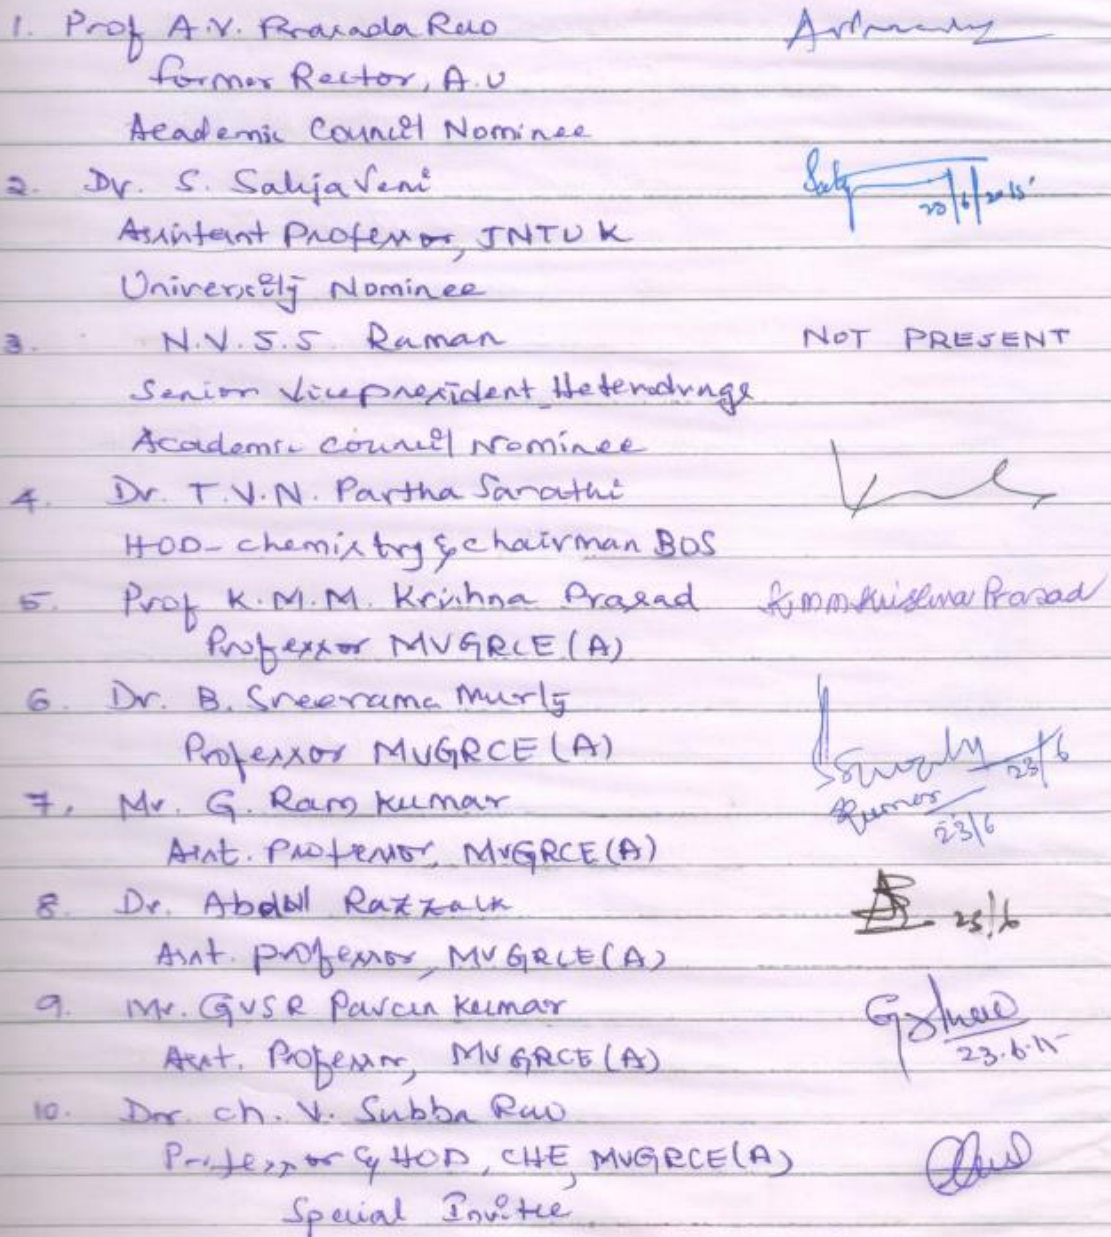 1. Prof A.V. Prasada Rao
former Rector, A.U
Academic Council Nominee
2. Dr. S. Sailaja Veni
Assistant Professor, JNTUK 23/6/2015
University Nominee
3. N.V.S.S. Raman NOT PRESENT
Senior Vicepresident Heterodrugs
Academic council Nominee
4. Dr. T.V.N. Partha Sarathi
HOD-chemistry & chairman BOS
5. Prof K.M.M. Krishna Prasad K.M.M Krishna Prasad
Professor MVGRCE (A)
6. Dr. B. Sreerama Murty
Professor MVGRCE (A) 23/6
7. Mr. G. Ram Kumar Kumar
Asst. Professor, MVGRCE (A) 23/6
8. Dr. Abdul Razzak 23/6
Asst. professor, MVGRCE (A)
9. Mr. GVSR Pavan Kumar
Asst. Professor, MVGRCE (A) 23.6.15
10. Dr. ch. V. Subba Rao
Professor & HOD, CHE, MVGRCE (A)
Special Invitee